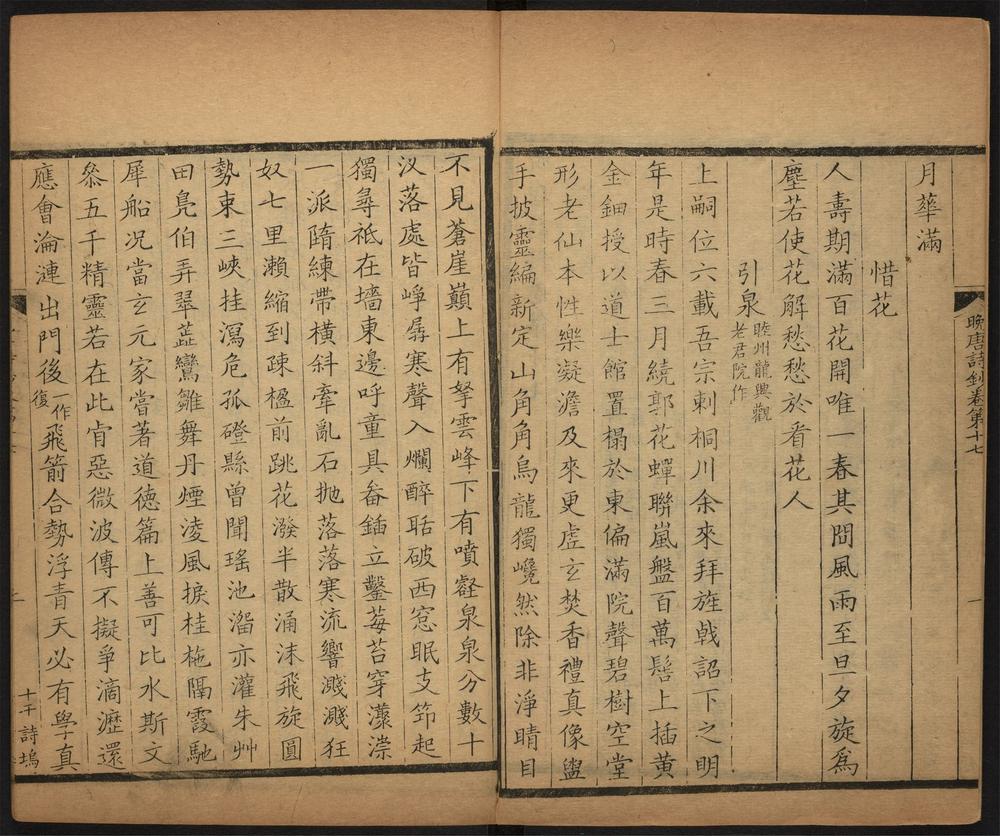 晚唐詩鈔卷第十七
一
月華滿
惜花
人壽期滿百花開唯一春其間風雨至旦夕旋爲
塵若使花解愁愁於看花人
引泉睦州龍興觀
老君院作
上嗣位六載吾宗刺桐川余來拜旌戟詔下之明
年是時春三月繞郭花蟬聯嵐盤百萬髻上插黃
金鈿授以道士館置榻於東偏滿院聲碧樹空堂
形老仙本性樂凝澹及來更虛玄焚香禮真像盥
手披靈編新定山角角烏龍獨巉然除非淨晴目
不見蒼崖巔上有拏雲峰下有噴壑泉泉分數十
汊落處皆崢㠔寒聲入爛醉聒破西窓眠支笻起
獨尋祗在墻東邊呼童具畚鍤立鑿莓苔穿濛淙
一派隋練帶橫斜牽亂石拋落落寒流響濺濺狂
奴七里瀨縮到疎楹前跳花潑半散涌沫飛旋圓
勢束三峽挂瀉危孤磴懸曾聞瑤池溜亦灌朱艸
田鳧伯弄翠蕋鸞雛舞丹煙淩風捩桂柂隔霞馳
犀船况當玄元家嘗著道德篇上善可比水斯文
叅五千精靈若在此肯惡微波傳不擬爭滴瀝還
應會淪漣出門後一作
復飛箭合勢浮青天必有學真
十干詩塢